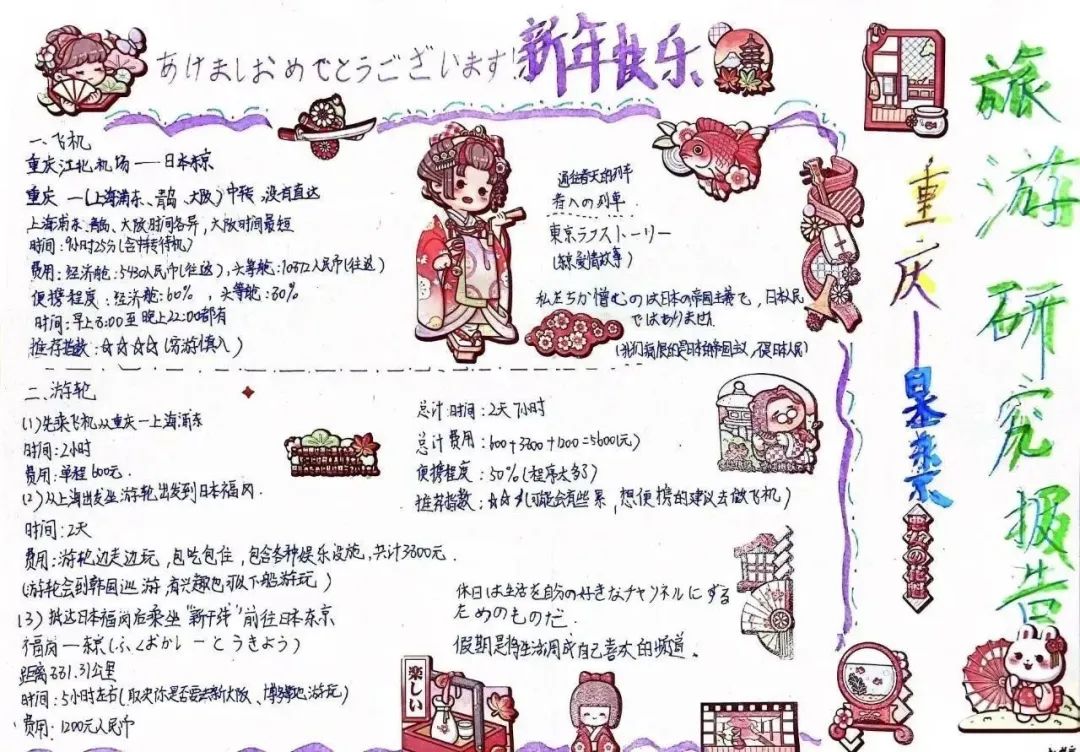 あけましおめでとうございます!
新年快乐
旅游研究报告
重庆——东京
一、飞机
重庆江北机场——日本东京
重庆—(上海浦东、青岛、大阪)中转,没有直达
上海浦东、青岛、大阪时间各异,大阪时间最短
时间:9小时25分(含中转待机)
费用:经济舱:5430人民币(往返),头等舱:10372人民币(往返)
便携程度:经济舱:60%,头等舱:30%
时间:早上8:00至晚上22:00都有
推荐指数:☆☆☆☆(穷游慎入)
通往春天的列车
春への列車
東京ラブストーリー
(东京爱情故事)
私たちが憎むのは日本の帝国主義で,日本人民
ではありません
(我们痛恨的是日本的帝国主义,不是日本人民)
二、游轮
(1)先乘飞机从重庆—上海浦东
时间:2小时
费用:单程600元.
(2)从上海出发坐游轮出发到日本福冈.
时间:2天
费用:游轮边走边玩,包吃包住,包含各种娱乐设施,共计3800元.
(游轮会到韩国巡游,有兴趣也可以下船游玩)
(3)抵达日本福冈后乘坐"新干线"前往日本东京
福岗—东京(ふくおかしーとうきよう)
距离881.31公里
时间:5小时左右(取决你是否要去新大阪、博多等地游玩)
费用:1200元人民币
总计时间:2天7小时
总计费用:600+3800+1200=5600(元)
便携程度:50%(程序太多了)
推荐指数:☆☆☆(可能会有些累,想便携的建议去做飞机)
休日は生活を自分の好きなチャンネルにする
ためのものだ.
假期是将生活调成自己喜欢的频道.
楽しい